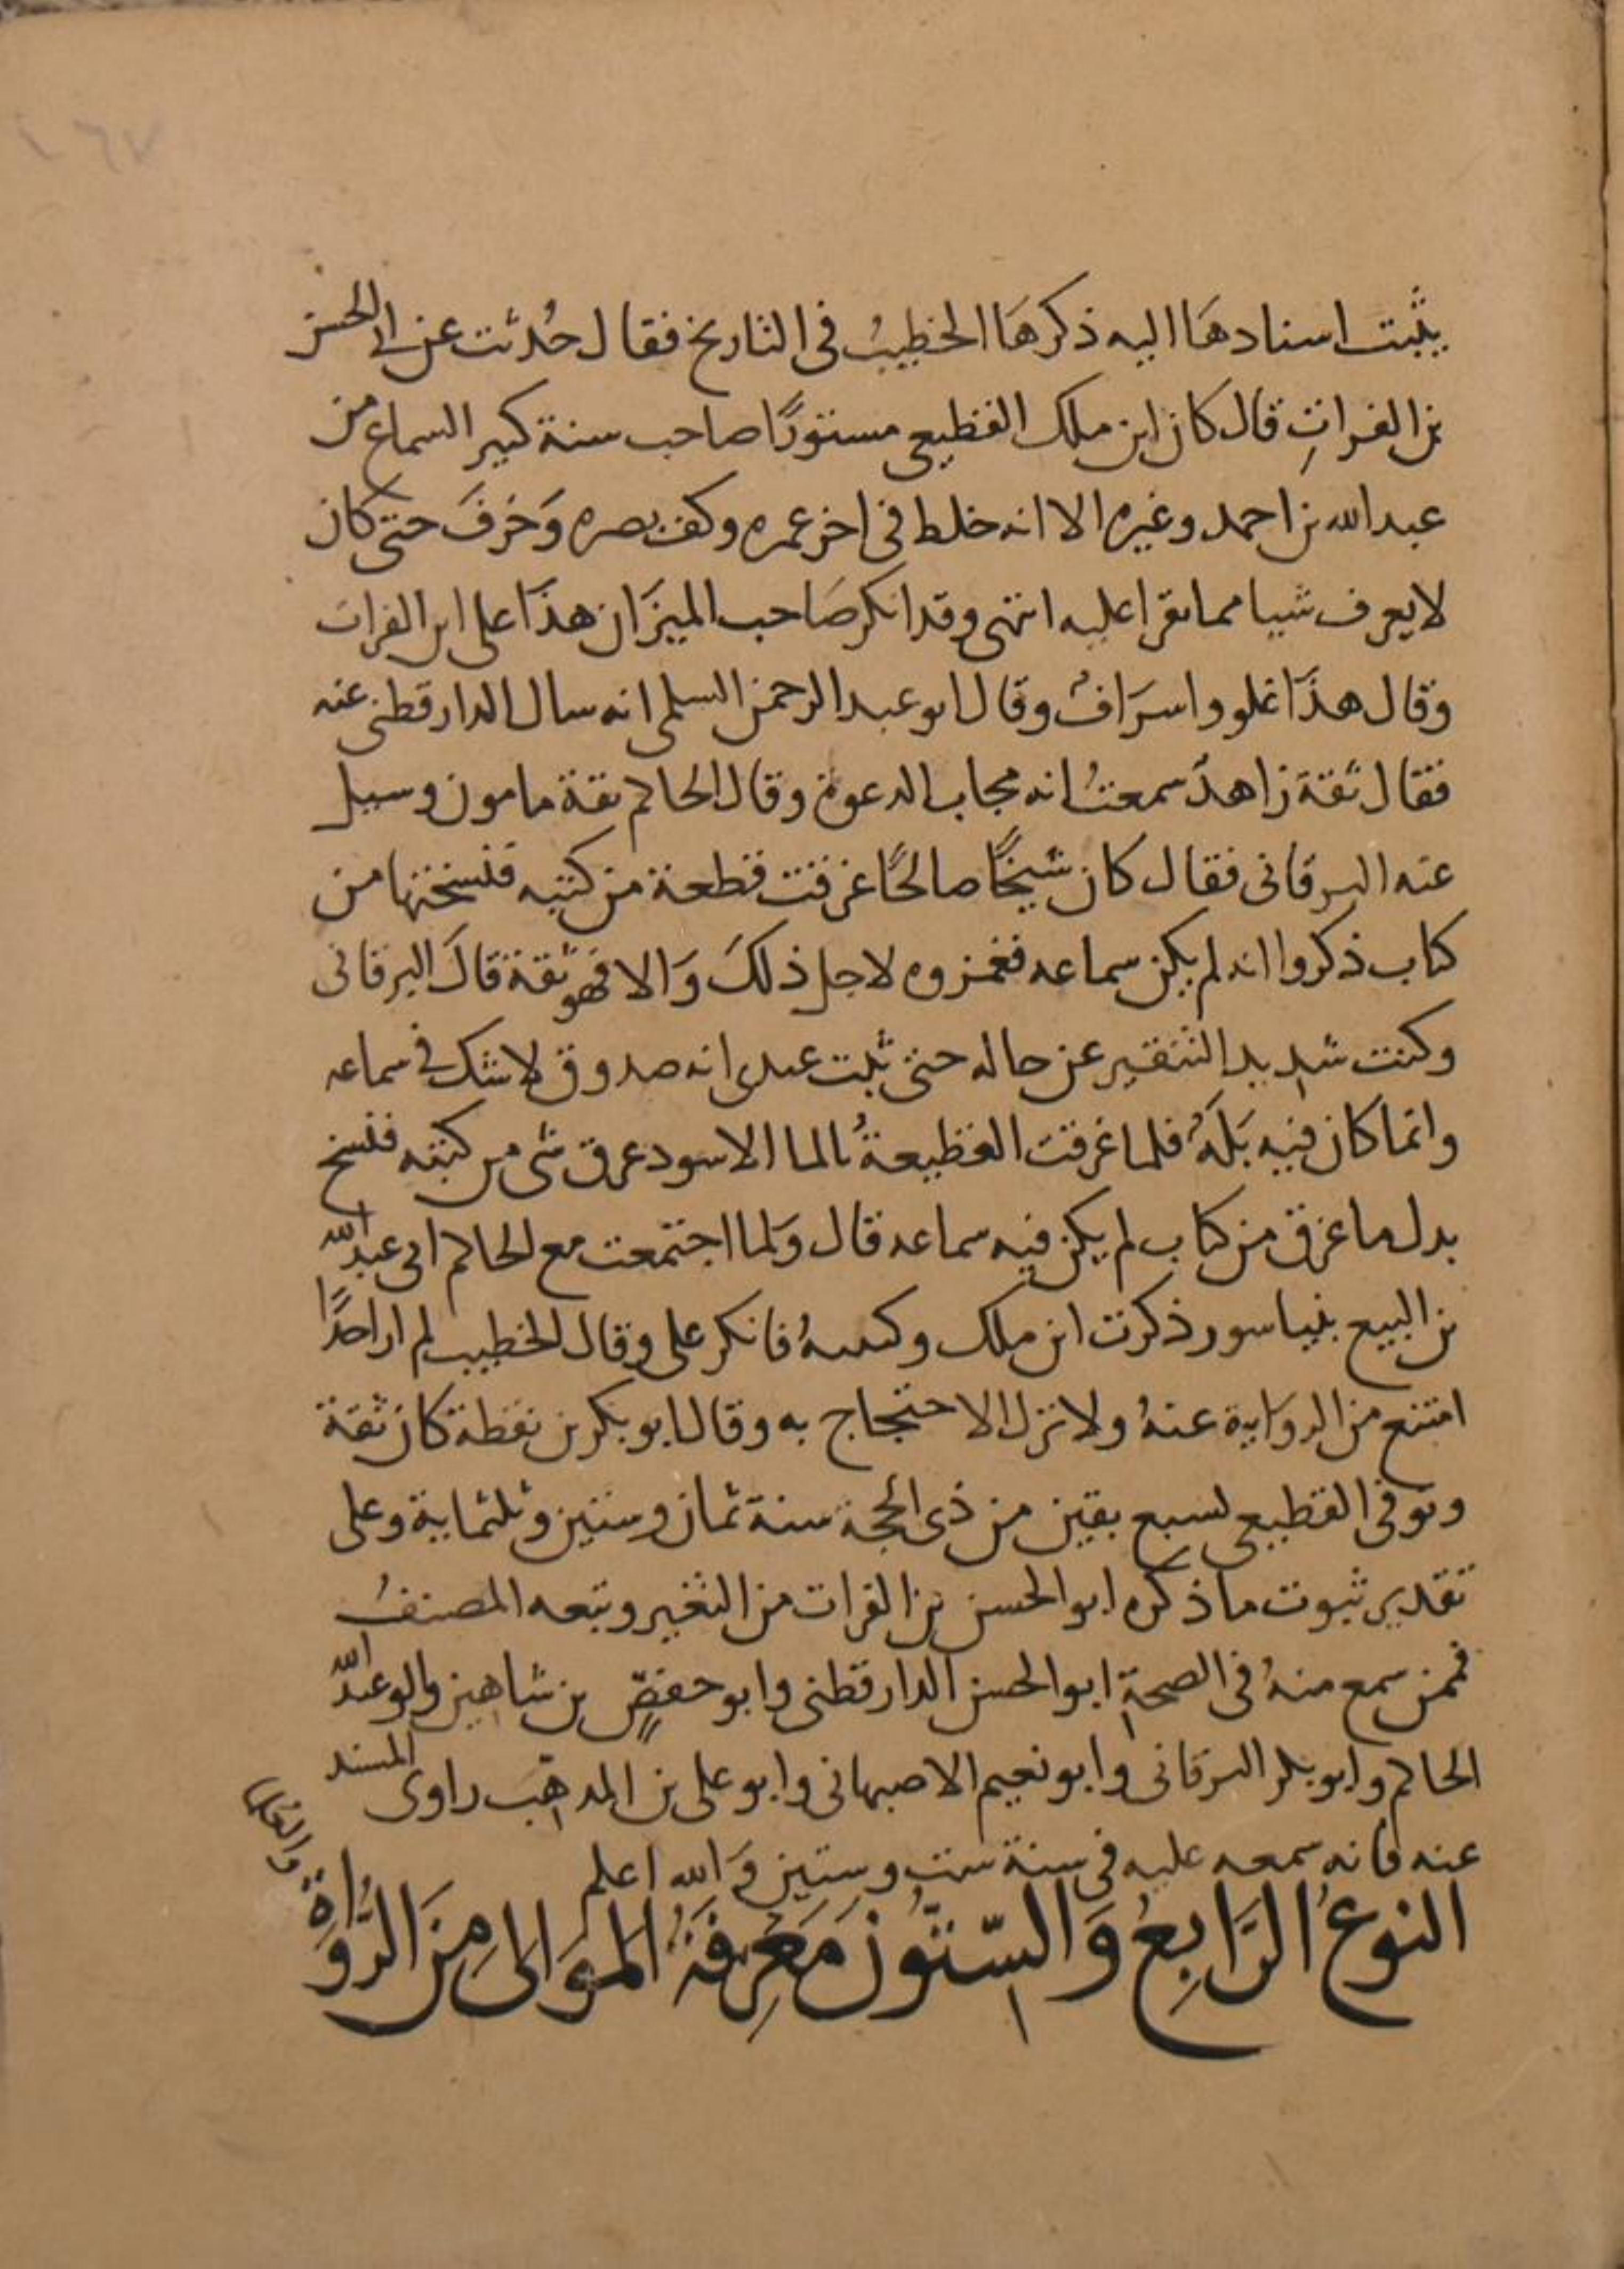 يثبت اسنادها اليه ذكرها الخطيب في التاريخ فقال حُدثت عن ابي الحسن
بن الفرات قال كان ابن ملك القطيعي مستورًا صاحب سنة كبير السماع من
عبد الله بن احمد وغيره الا انه خلط في اخر عمره وكف بصره وَخَرفَ حتى كان
لا يعرف شيا مما يقرا عليه انتهى وقد انكر صَاحب الميزَان هذَا على ابن الفرات
وقال هذَا غلو واسرَافٌ وقال ابو عبد الرحمن السلمي انه سال الدارقطني عنه
فقال ثقة زاهدٌ سمعتُ انه مجاب الدعوة وقال الحاكم ثقة مامون وسيل
عنه البرقاني فقال كان شيخًا صالحًا غرقت قطعة من كتبه فنسخها من
كتاب ذكروا انه لم يكن سماعه فغمزوه لاجل ذلكَ وَالا فهو ثقة قالَ البرقاني
وكنت شديد التنقير عن حاله حتى ثبت عندي انه صدوق لا شك في سماعه
وانما كان فيه بَلَهٌ فلما غرقت القطيعةُ بالما الاسود غرق شي من كتبه فنسخ
بدل ما غرق من كتاب لم يكن فيه سماعه قال وَلما اجتمعت مع الحاكم ابي عبد الله
بن البيع بنيسابور ذكرت ابن ملك ولينتهُ فانكر علي وقال الخطيب لم ار احدًا
امتنع من الروَاية عنهُ ولا ترك الاحتجاج به وقال ابو بكر بن نقطة كان ثقة
وتوفي القطيعي لسبع بقين من ذي الحجة سنة ثمان وستين وثلثماية وعلى
تقدير ثبوت ما ذكره ابو الحسن بن الفرات من التغير وتبعه المصنفُ
فممن سمع منهُ في الصحة ابو الحسن الدارقطني وابو حفصٍ بن شاهين وابو عبد الله
الحاكم وابو بكر البرقاني وابو نعيم الاصبهاني وابو علي بن المذهب راوي المسند
عنه فانه سمعه عليه في سنة ست وستين وَالله اعلم
النوعُ الرَّابِعُ وَالسّتُّونَ مَعْرِفَةُ المَوَالى مِنَ الرُّوَاةِ
والعلما